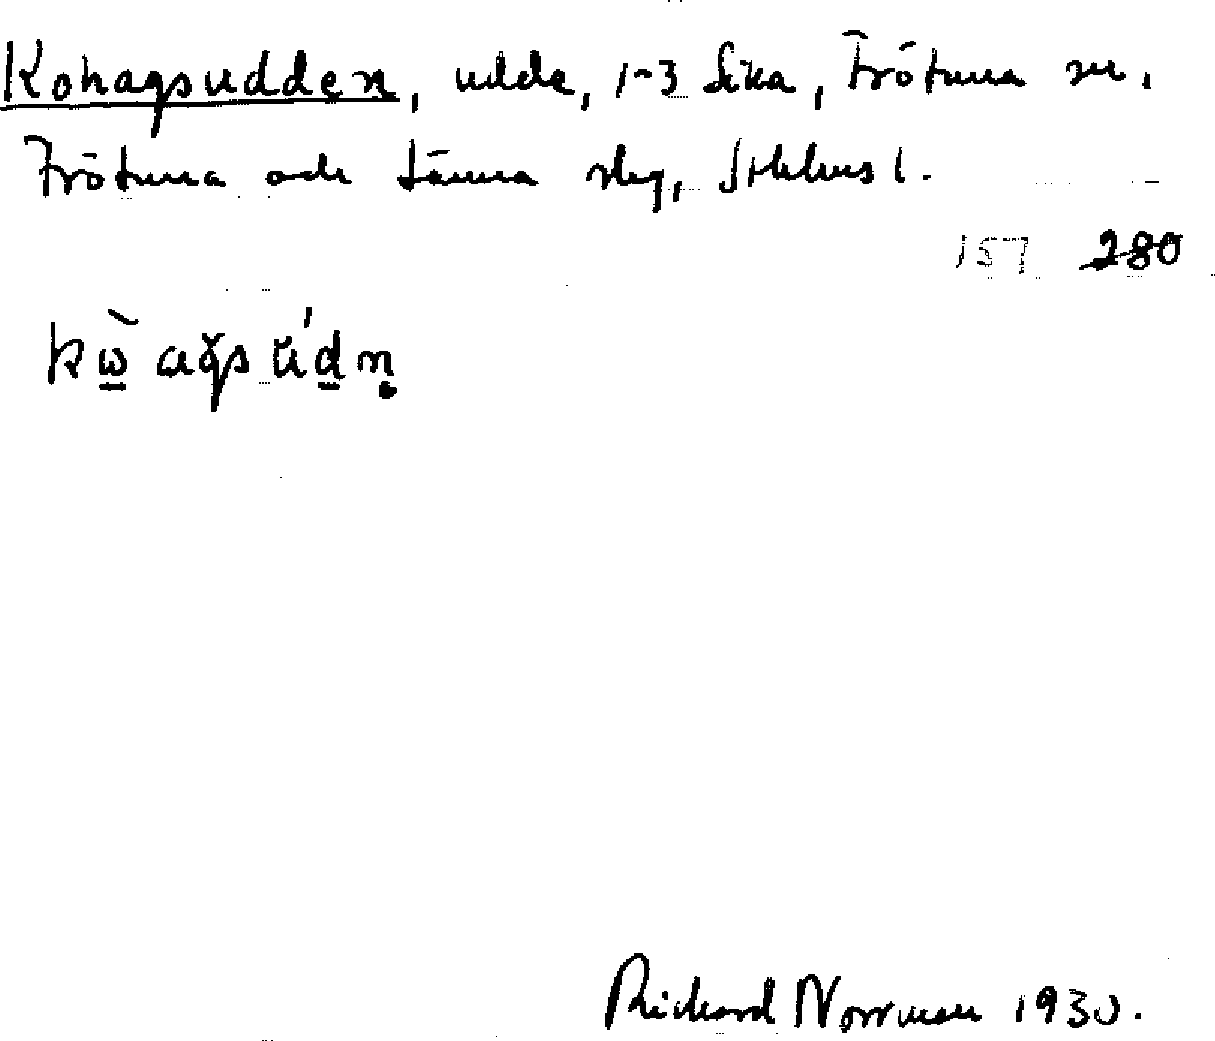 Kohagsudden, udde, 1-3 Sika, Frötuna sn.
Frötuna och Länna slg, Sthlms l.
157 280
Richard Norrman 1930.